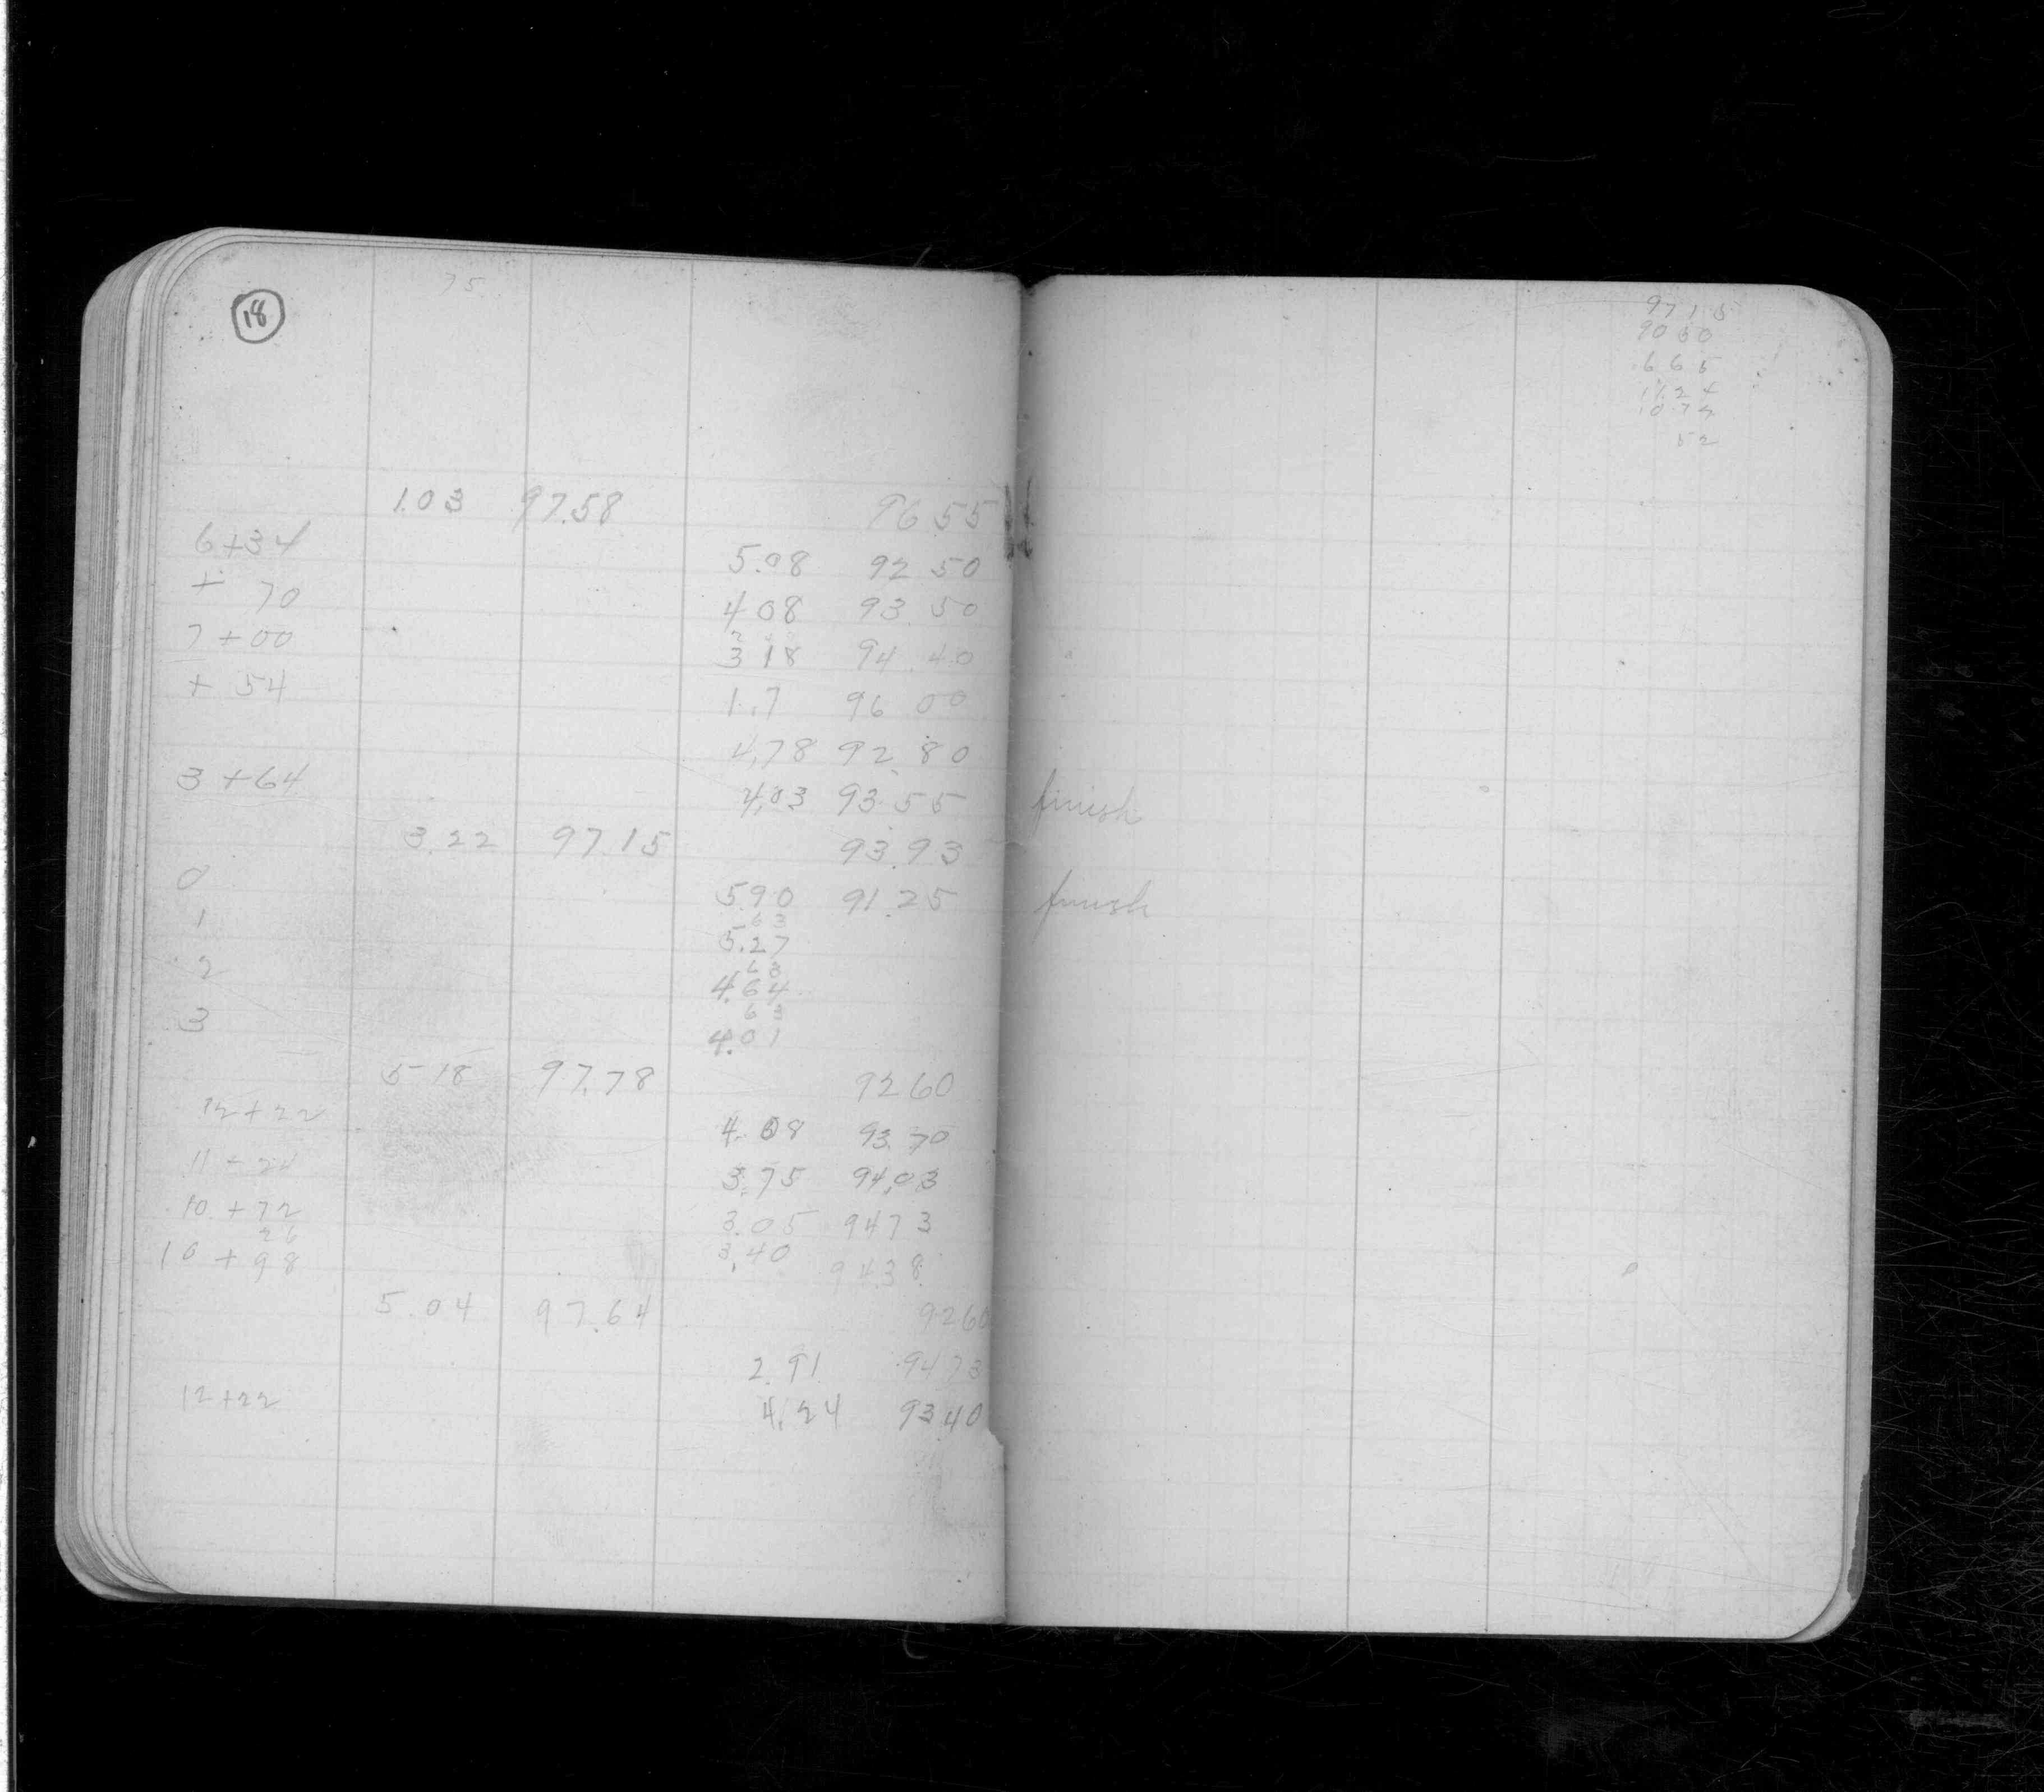 75
18
1.03 97.58 96.55
6+34 5.08 92.50
+ 70 4 08 93.50
7+00 3 18 94.40
+ 54 96 00
4,78 92.80
3+64 4,03 93.55 finish
3.22 97.15 93.93
0 5.90 91.25 finish
63
1 5.27
63
2 4.64
63
3 4.01
5 18 97.78 92 60
12+22 4.08 93.70
11 + 24 3.75 94.03
10 + 72 3.05 94 73
26
10 + 98 3.40 94 38
5.04 97.64 92 60
2.91 94 73
12+22 4.24 93.40
97 15
90 50
6 65
11.24
10 72
52